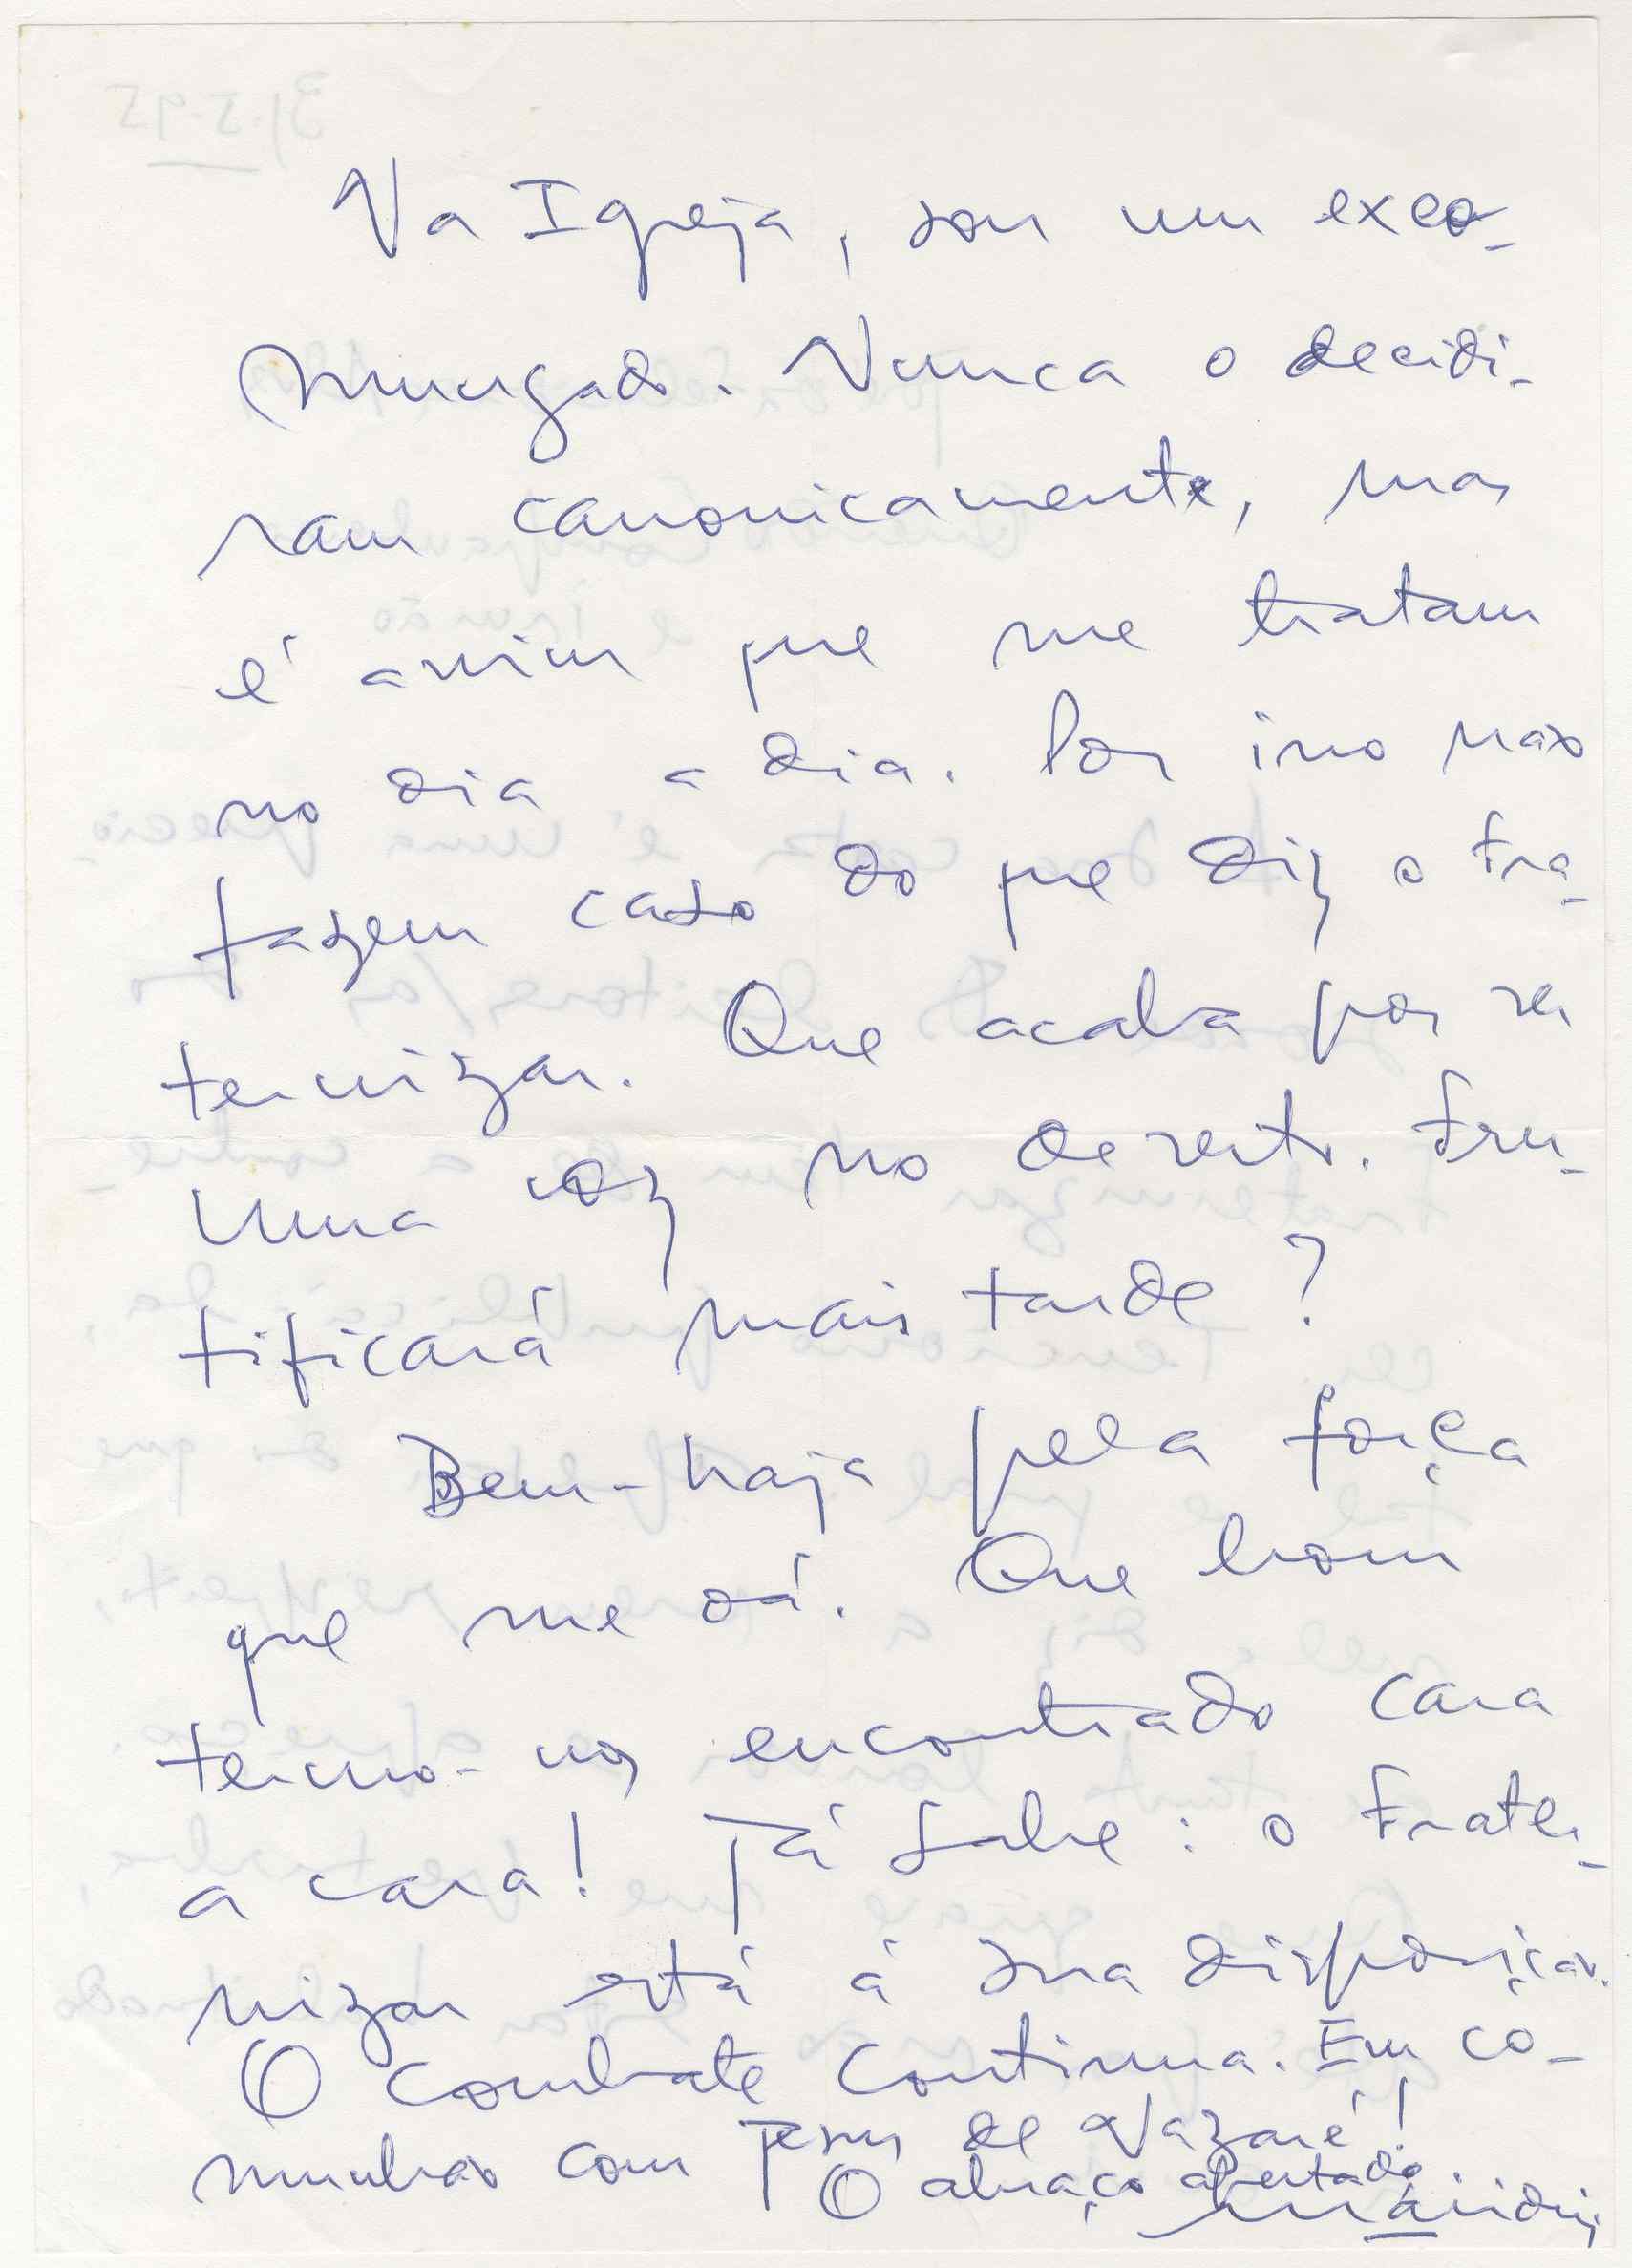 Na Igreja, sou um exco-
mungado. Nunca o decidi-
ram canonicamente, mas
é assim que me tratam
no dia a dia. Por isso não
fazem caso do que diz o Fra-
ternizar. Que acaba por ser
uma voz no deserto. Fru-
tificará mais tarde?
Bem-haja pela força
que me dá. Que bom
termo-nos encontrado cara
a cara! Já sabe: o Frater-
nizar está à sua disposição.
O combate continua. Em co-
munhão com Jesus de Nazaré!
O abraço apertado.